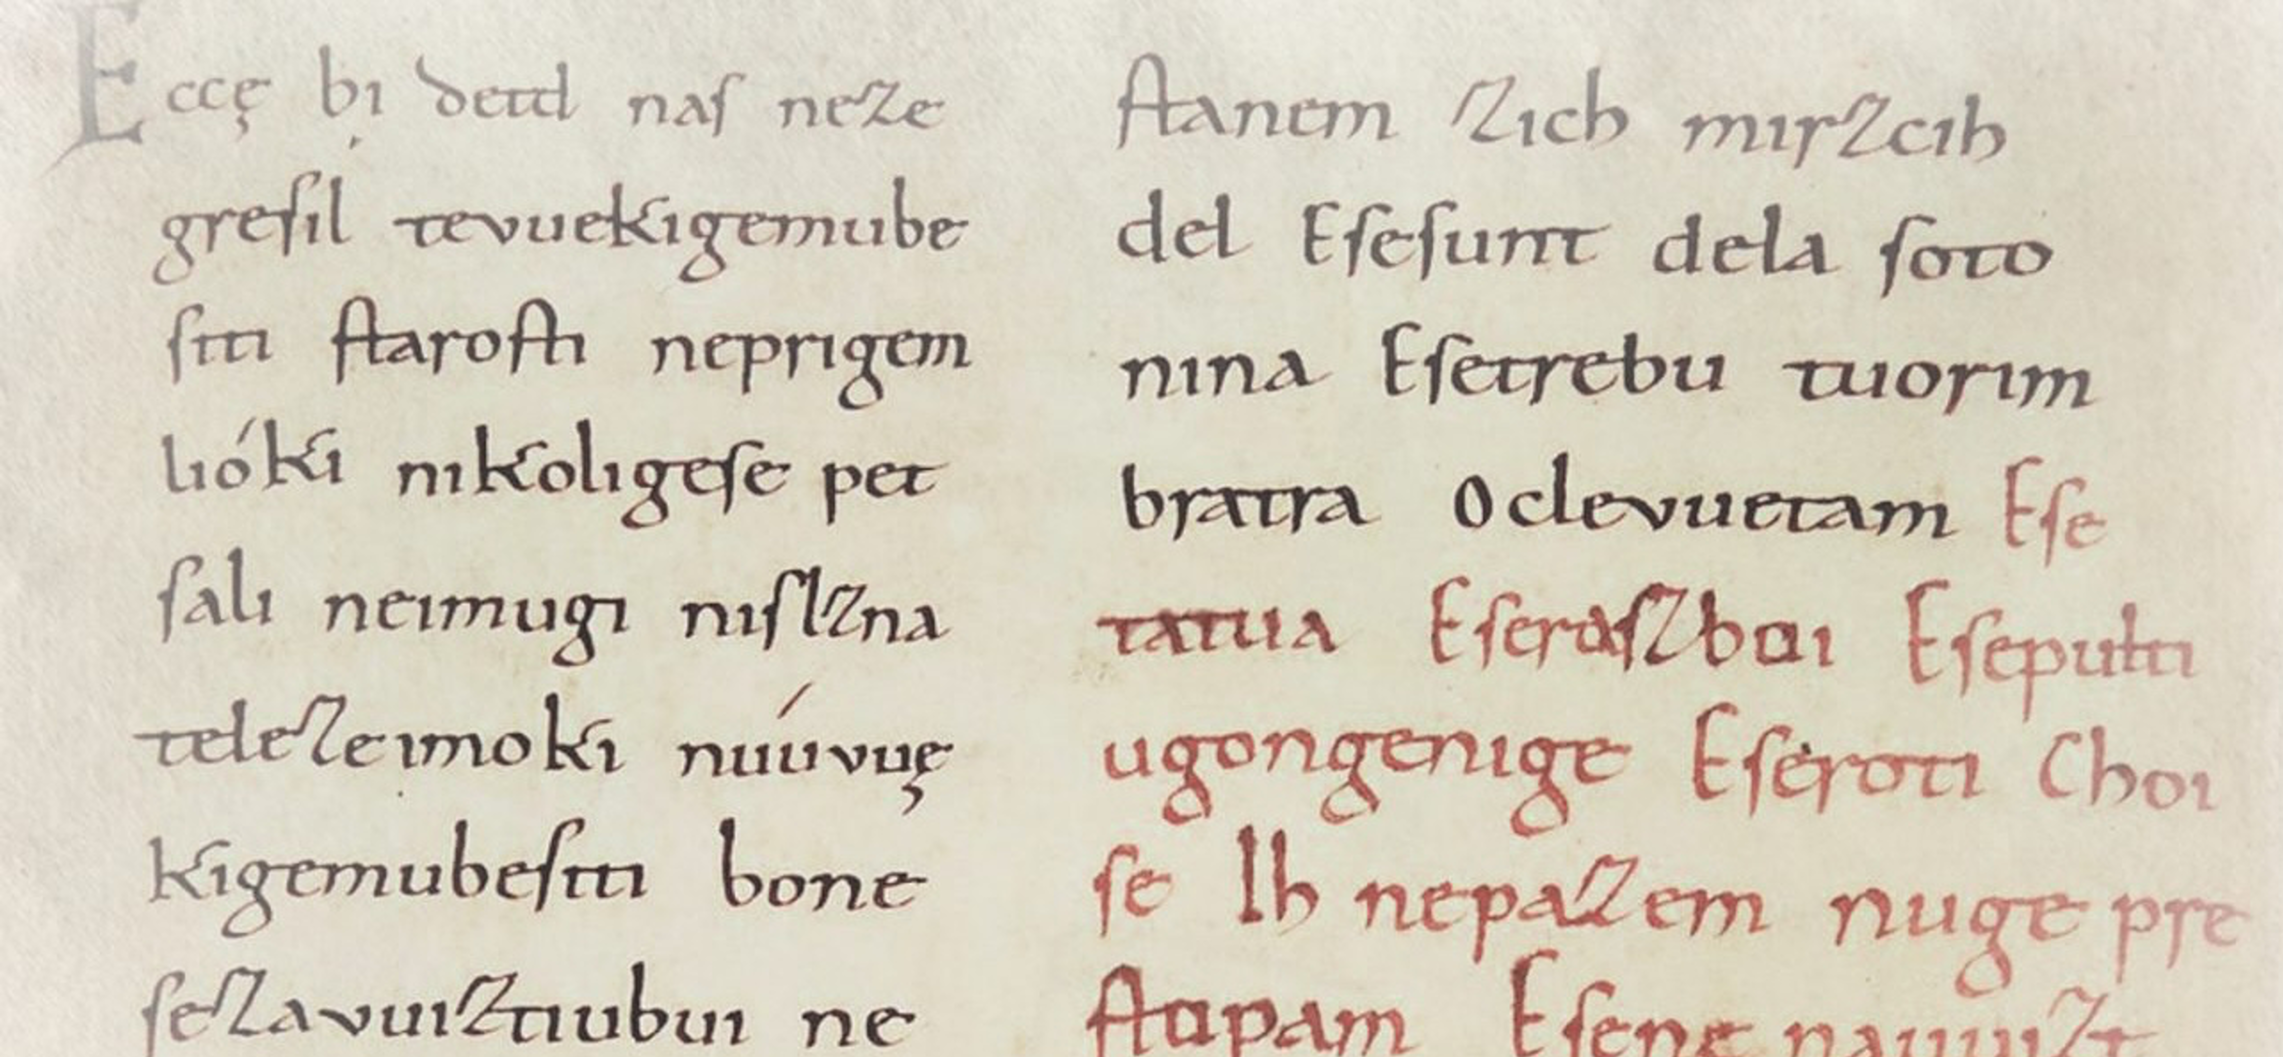 Eccę bi detd naſ neze
greſil tevuekigemube
ſiti ſtaroſti neprigem
lióki nikoligeſe pet
ſali neimugi niſlzna
telezeimoki nuúvuę
kigemubeſiti bone
ſezavuiztiubui ne
ſtanem zich mirzcih
del Eſeſunt dela ſoto
nina Eſetrebu tuorim
bratra Oclevuetam Eſe
tatua Eſeraſzboi Eſepulti
ugongenige Eſeroti Choi
ſe Ih nepazem nuge pre
ſtopam Eſene nauuizt